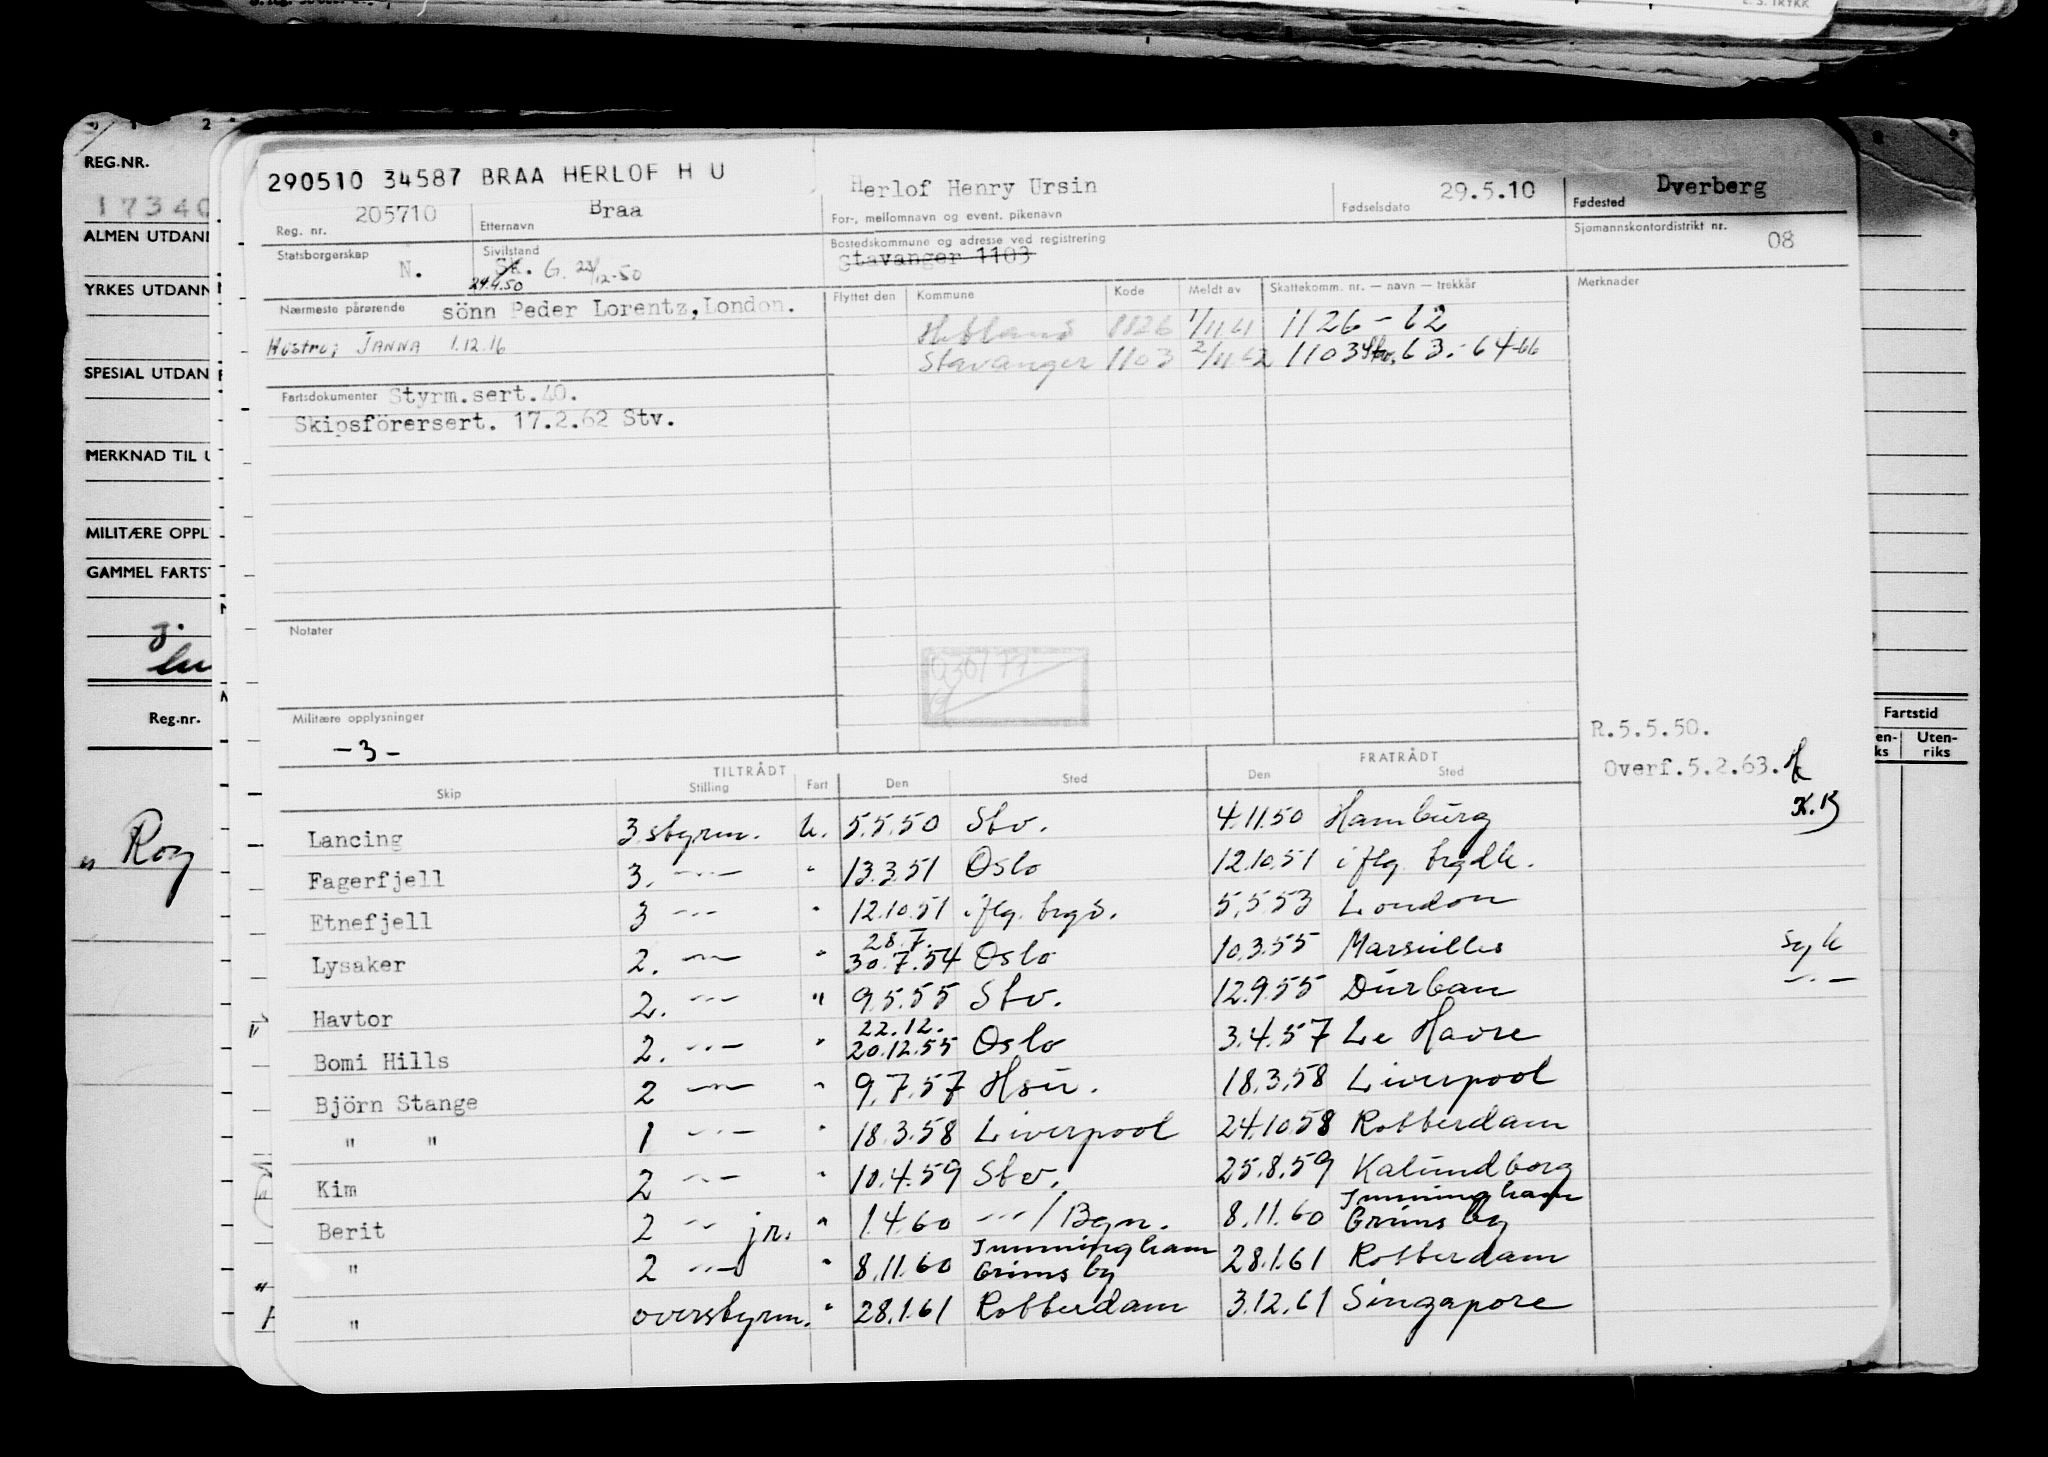 L. S. TRYKK
1 2
REG.NR.
17340
ALMEN UTDAN
YRKES UTDANN
SPESIAL UTDAN
MERKNAD TIL U
MILITÆRE OPPL
GAMMEL FARTS
Reg.nr.
" Roy
8 9
Fartstid
en- Uten-
ks riks
290510 34587 BRAA HERLOF H U
Herlof Henry Ursin 29.5.10 Dverberg
205710 Braa
Reg. nr. Etternavn For-, mellomnavn og event. pikenavn Fødselsdato Fødested
Statsborgerskap N. Sivilstand Sk. G. 23/12-50
24.4.50
Bostedskommune og adresse ved registrering
Stavanger 1103
Sjømannskontordistrikt nr. 08
Nærmeste pårørende sönn Peder Lorentz, London.
Hustru; JANNA 1.12.16
Flyttet den Kommune Kode Meldt av Skattekomm. nr. — navn — trekkår Merknader
Hetland 1126 1/11 61 1126-62
Stavanger 1103 2/11 62 1103 Stv. 63.-64-66
Fartsdokumenter Styrm.sert.40.
Skipsförersert. 17.2.62 Stv.
Notater
Militære opplysninger
-3-
R.5.5.50.
Overf.5.2.63.
K.B
TILTRÅDT FRATRÅDT
Skip Stilling Fart Den Sted Den Sted
Lancing 3.styrm. u. 5.5.50 Stv. 4.11.50 Hamburg
Fagerfjell 3. -"- " 13.3.51 Oslo 12.10.51 i flg. brgdk.
Etnefjell 3 -"- " 12.10.51 i flg. brgd. 5.5.53 London
Lysaker 2. -"- " 28.7. 30.7.54 Oslo 10.3.55 Marseilles syk
Havtor 2. -"- " 9.5.55 Stv. 12.9.55 Durban -"-
Bomi Hills 2. -"- " 22.12. 20.12.55 Oslo 3.4.57 Le Havre
Björn Stange 2 -"- " 9.7.57 Hsu. 18.3.58 Liverpool
" " 1 -"- " 18.3.58 Liverpool 24.10.58 Rotterdam
Kim 2 -"- " 10.4.59 Stv. 25.8.59 Kalundborg
Berit 2 -"- jr. " 1.4.60 -"-/Bgn. 8.11.60 Immingham Grimsby
" 2 -"- " 8.11.60 Immingham Grimsby 28.1.61 Rotterdam
" overstyrm. " 28.1.61 Rotterdam 3.12.61 Singapore